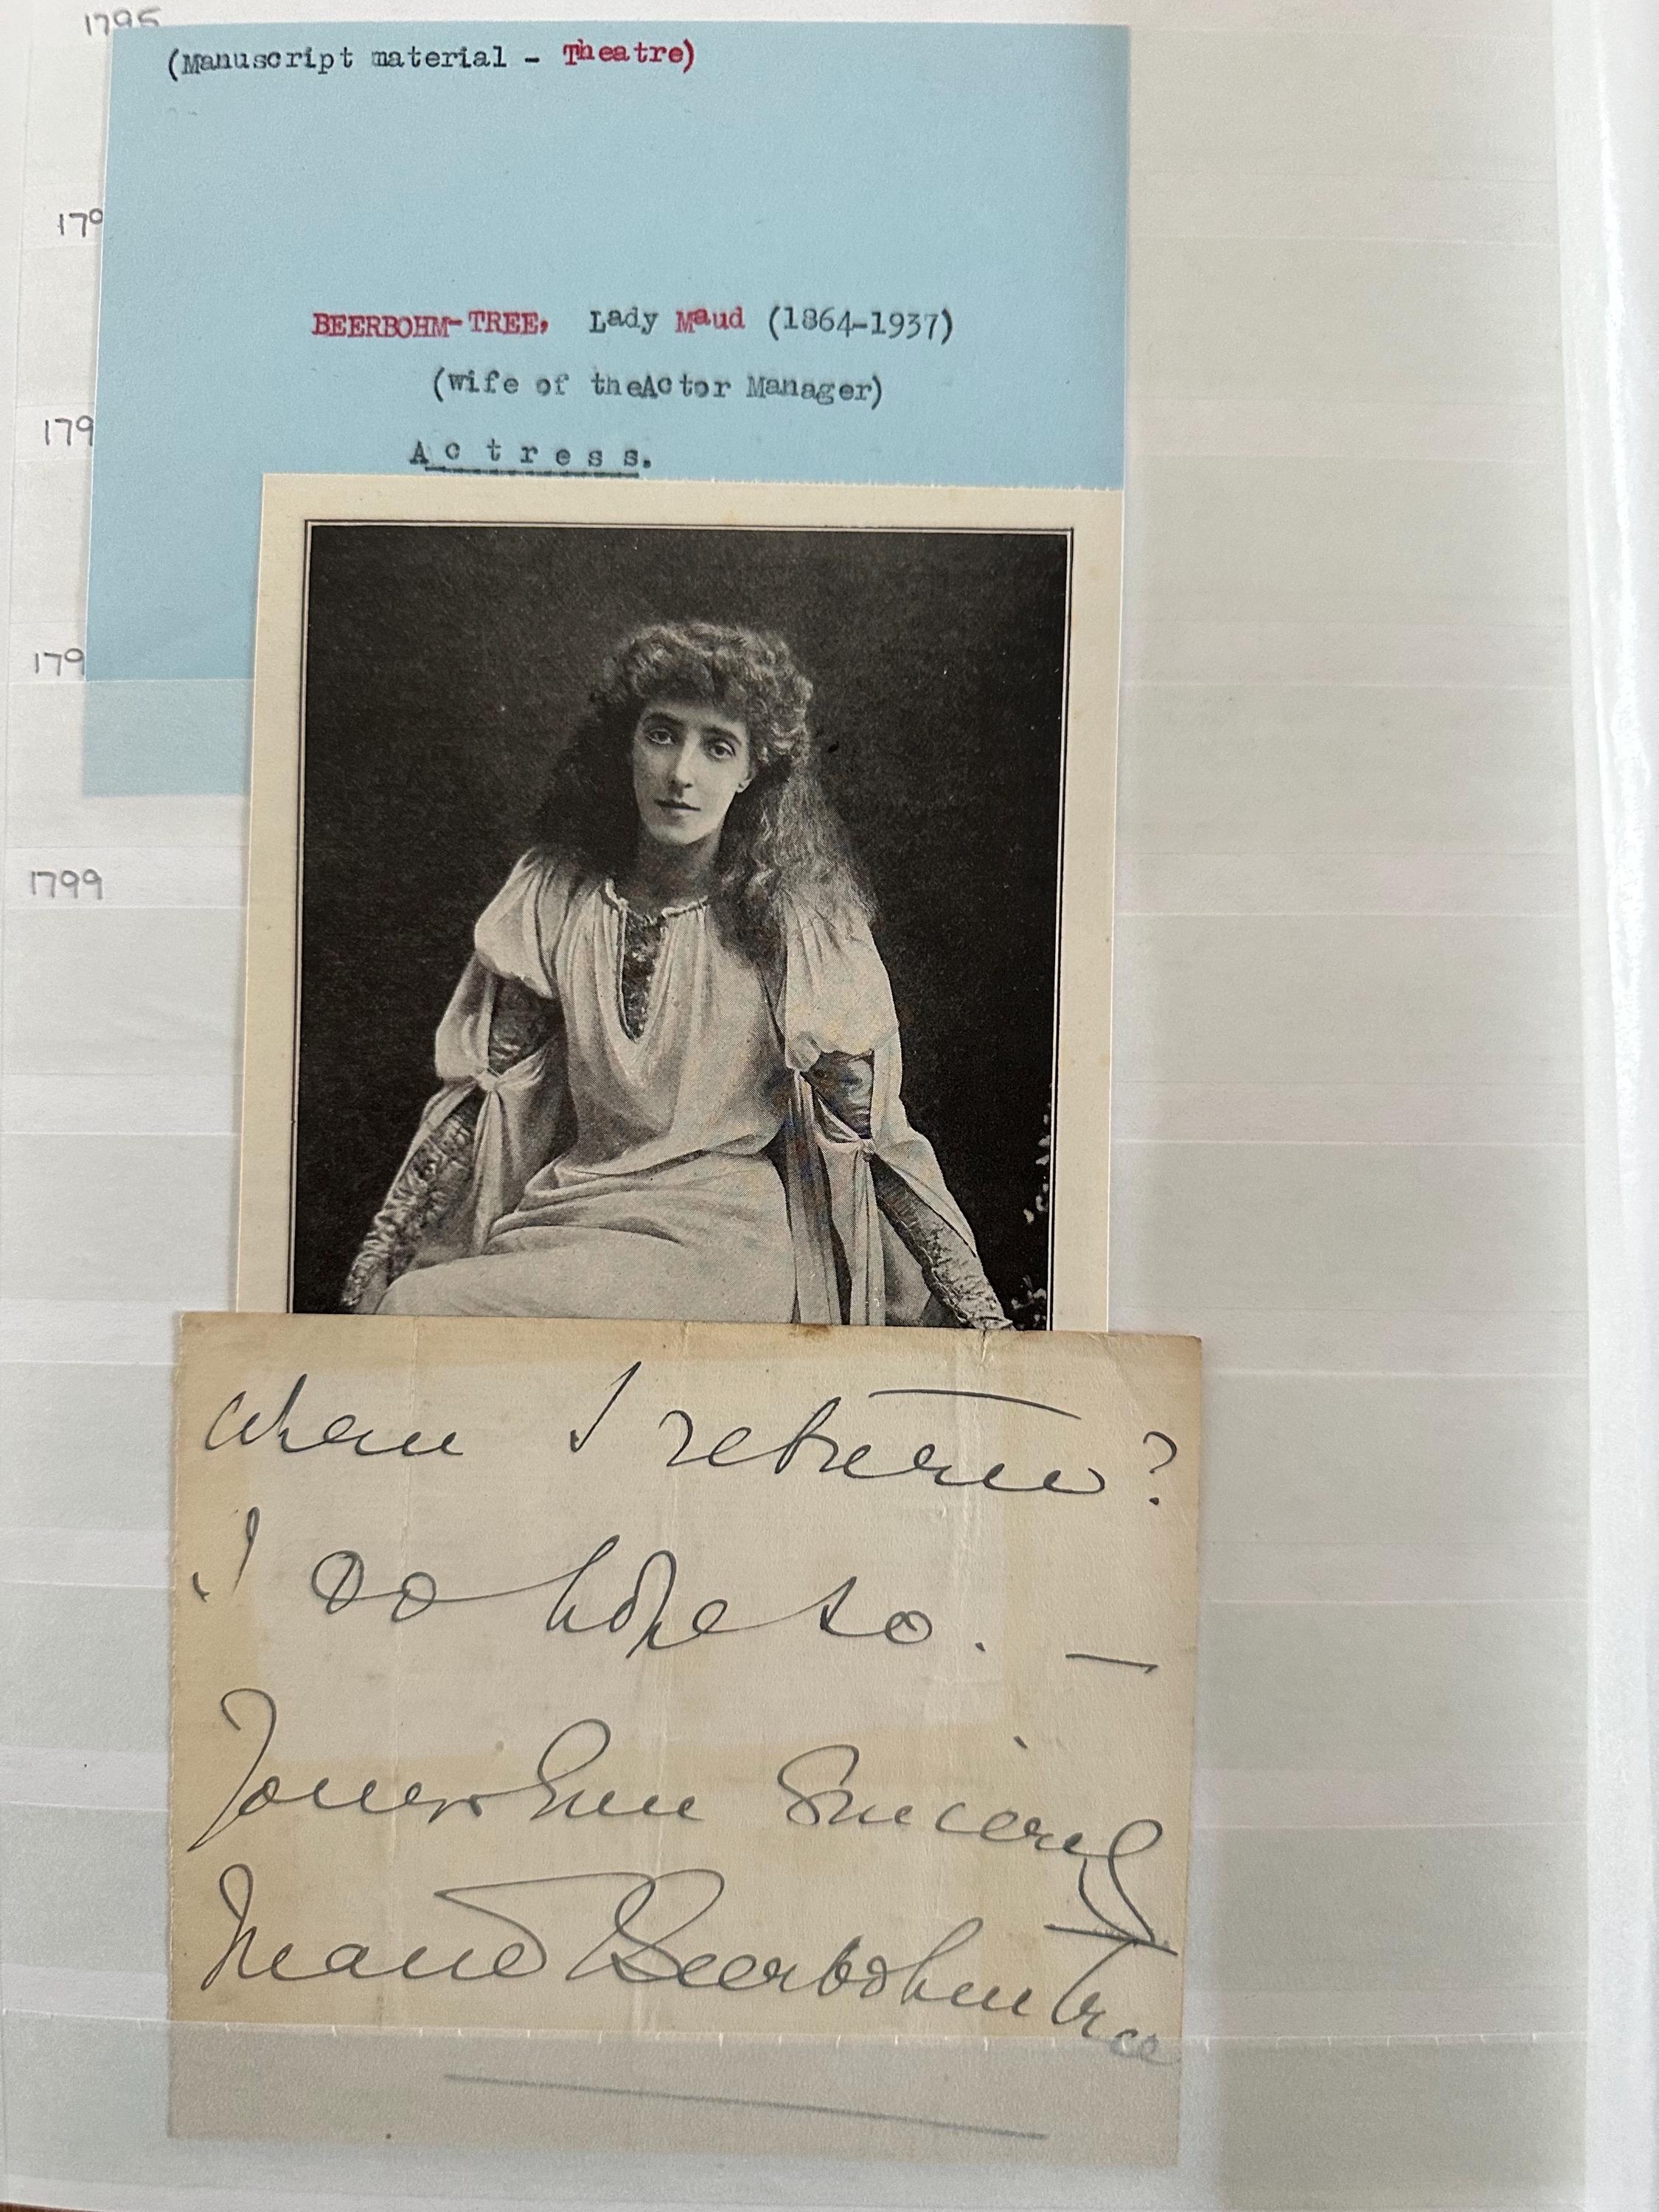 1795
(Manuscript material - Theatre)
179
BEERBOHM-TREE, Lady Maud (1864-1937)
(wife of theActor Manager)
179
Actress.
179
1799
When I return?
I do hope so. —
Yours Ever Sincerely
Maud Beerbohm Tree